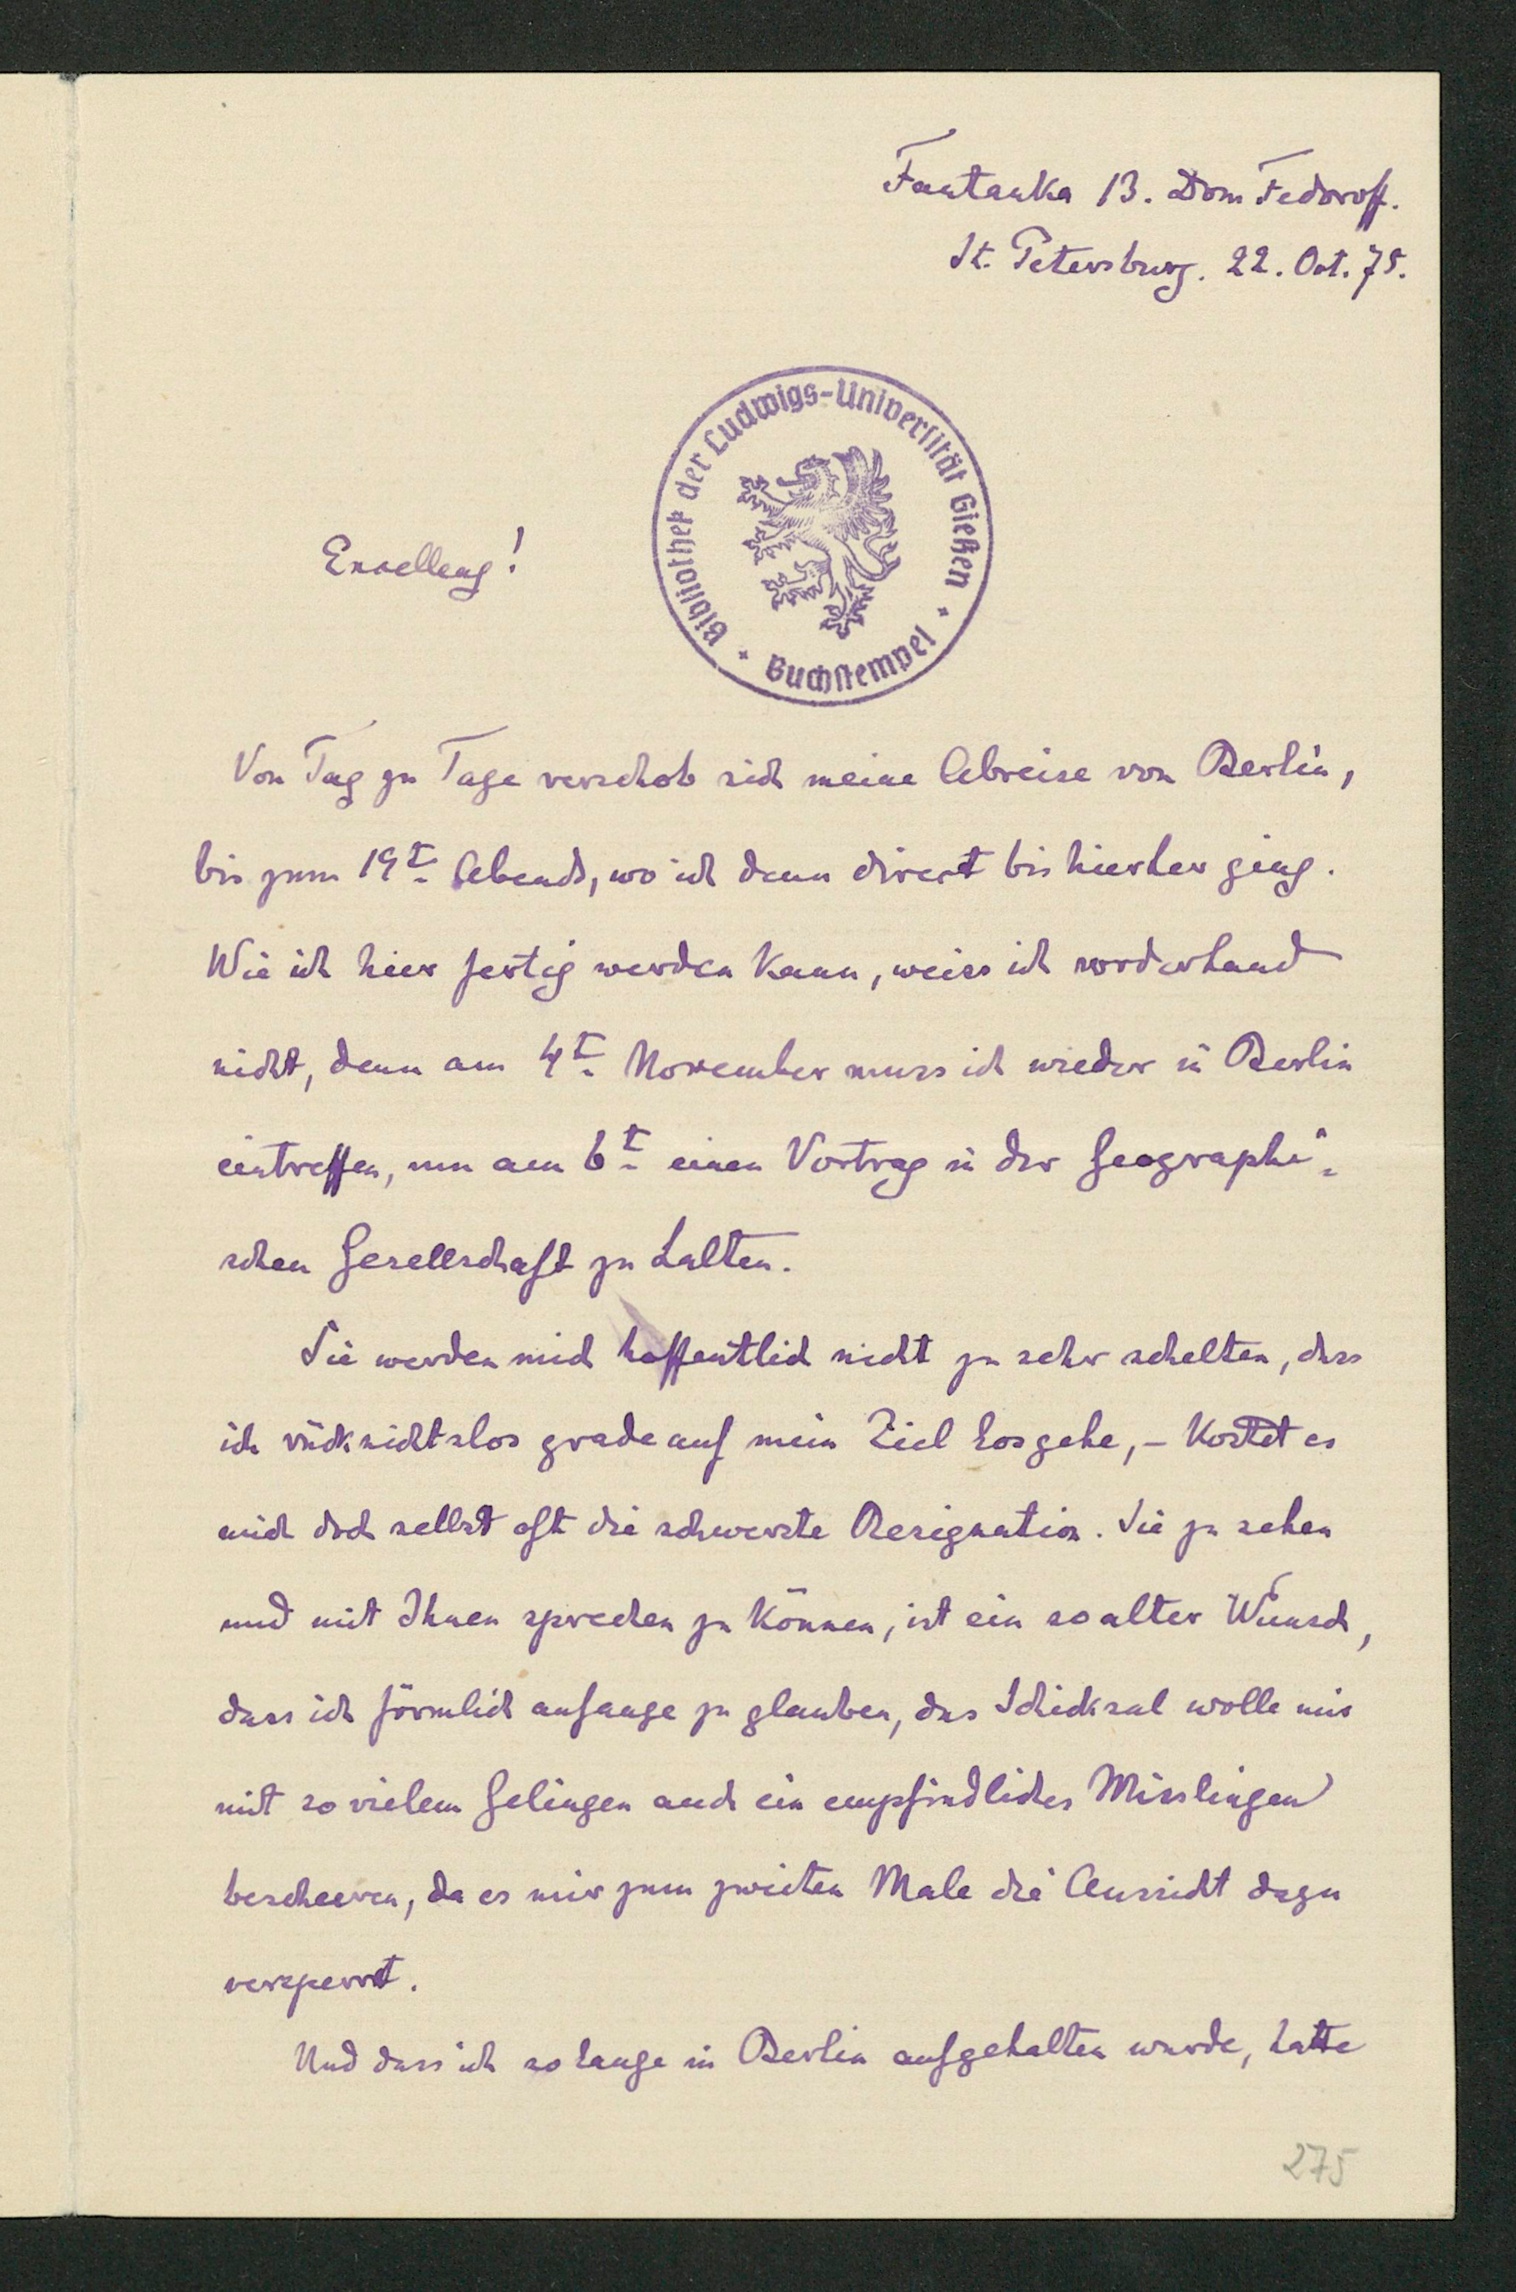 Fantanka 13. Dom Fedoroff.
St. Petersburg. 22. Oct. 75.
Bibliothek der Ludwigs-Universität Gießen
Buchstempel
Excellenz!
Von Tag zu Tage verschob sich meine Abreise von Berlin,
bis zum 19t. Abends, wo ich dann direct bis hierher ging.
Wie ich hier fertig werden kann, weiss ich vorderhand
nicht, denn am 4t. November muss ich wieder in Berlin
eintreffen, um am 6t. einen Vortrag in der Geographi-
schen Gesellschaft zu halten.
Sie werden mich hoffentlich nicht zu sehr schelten, dass
ich rücksichtslos grade auf mein Ziel losgehe, – kostet es
mich doch selbst oft die schwerste Resignation. Sie zu sehen
und mit Ihnen sprechen zu können, ist ein so alter Wunsch,
dass ich förmlich anfange zu glauben, das Schicksal wolle mir
mit so vielem Gelingen auch ein empfindliches Misslingen
bescheeren, da es mir zum zweiten Male die Aussicht dazu
versperrt.
Und dass ich so lange in Berlin aufgehalten wurde, hatte
275